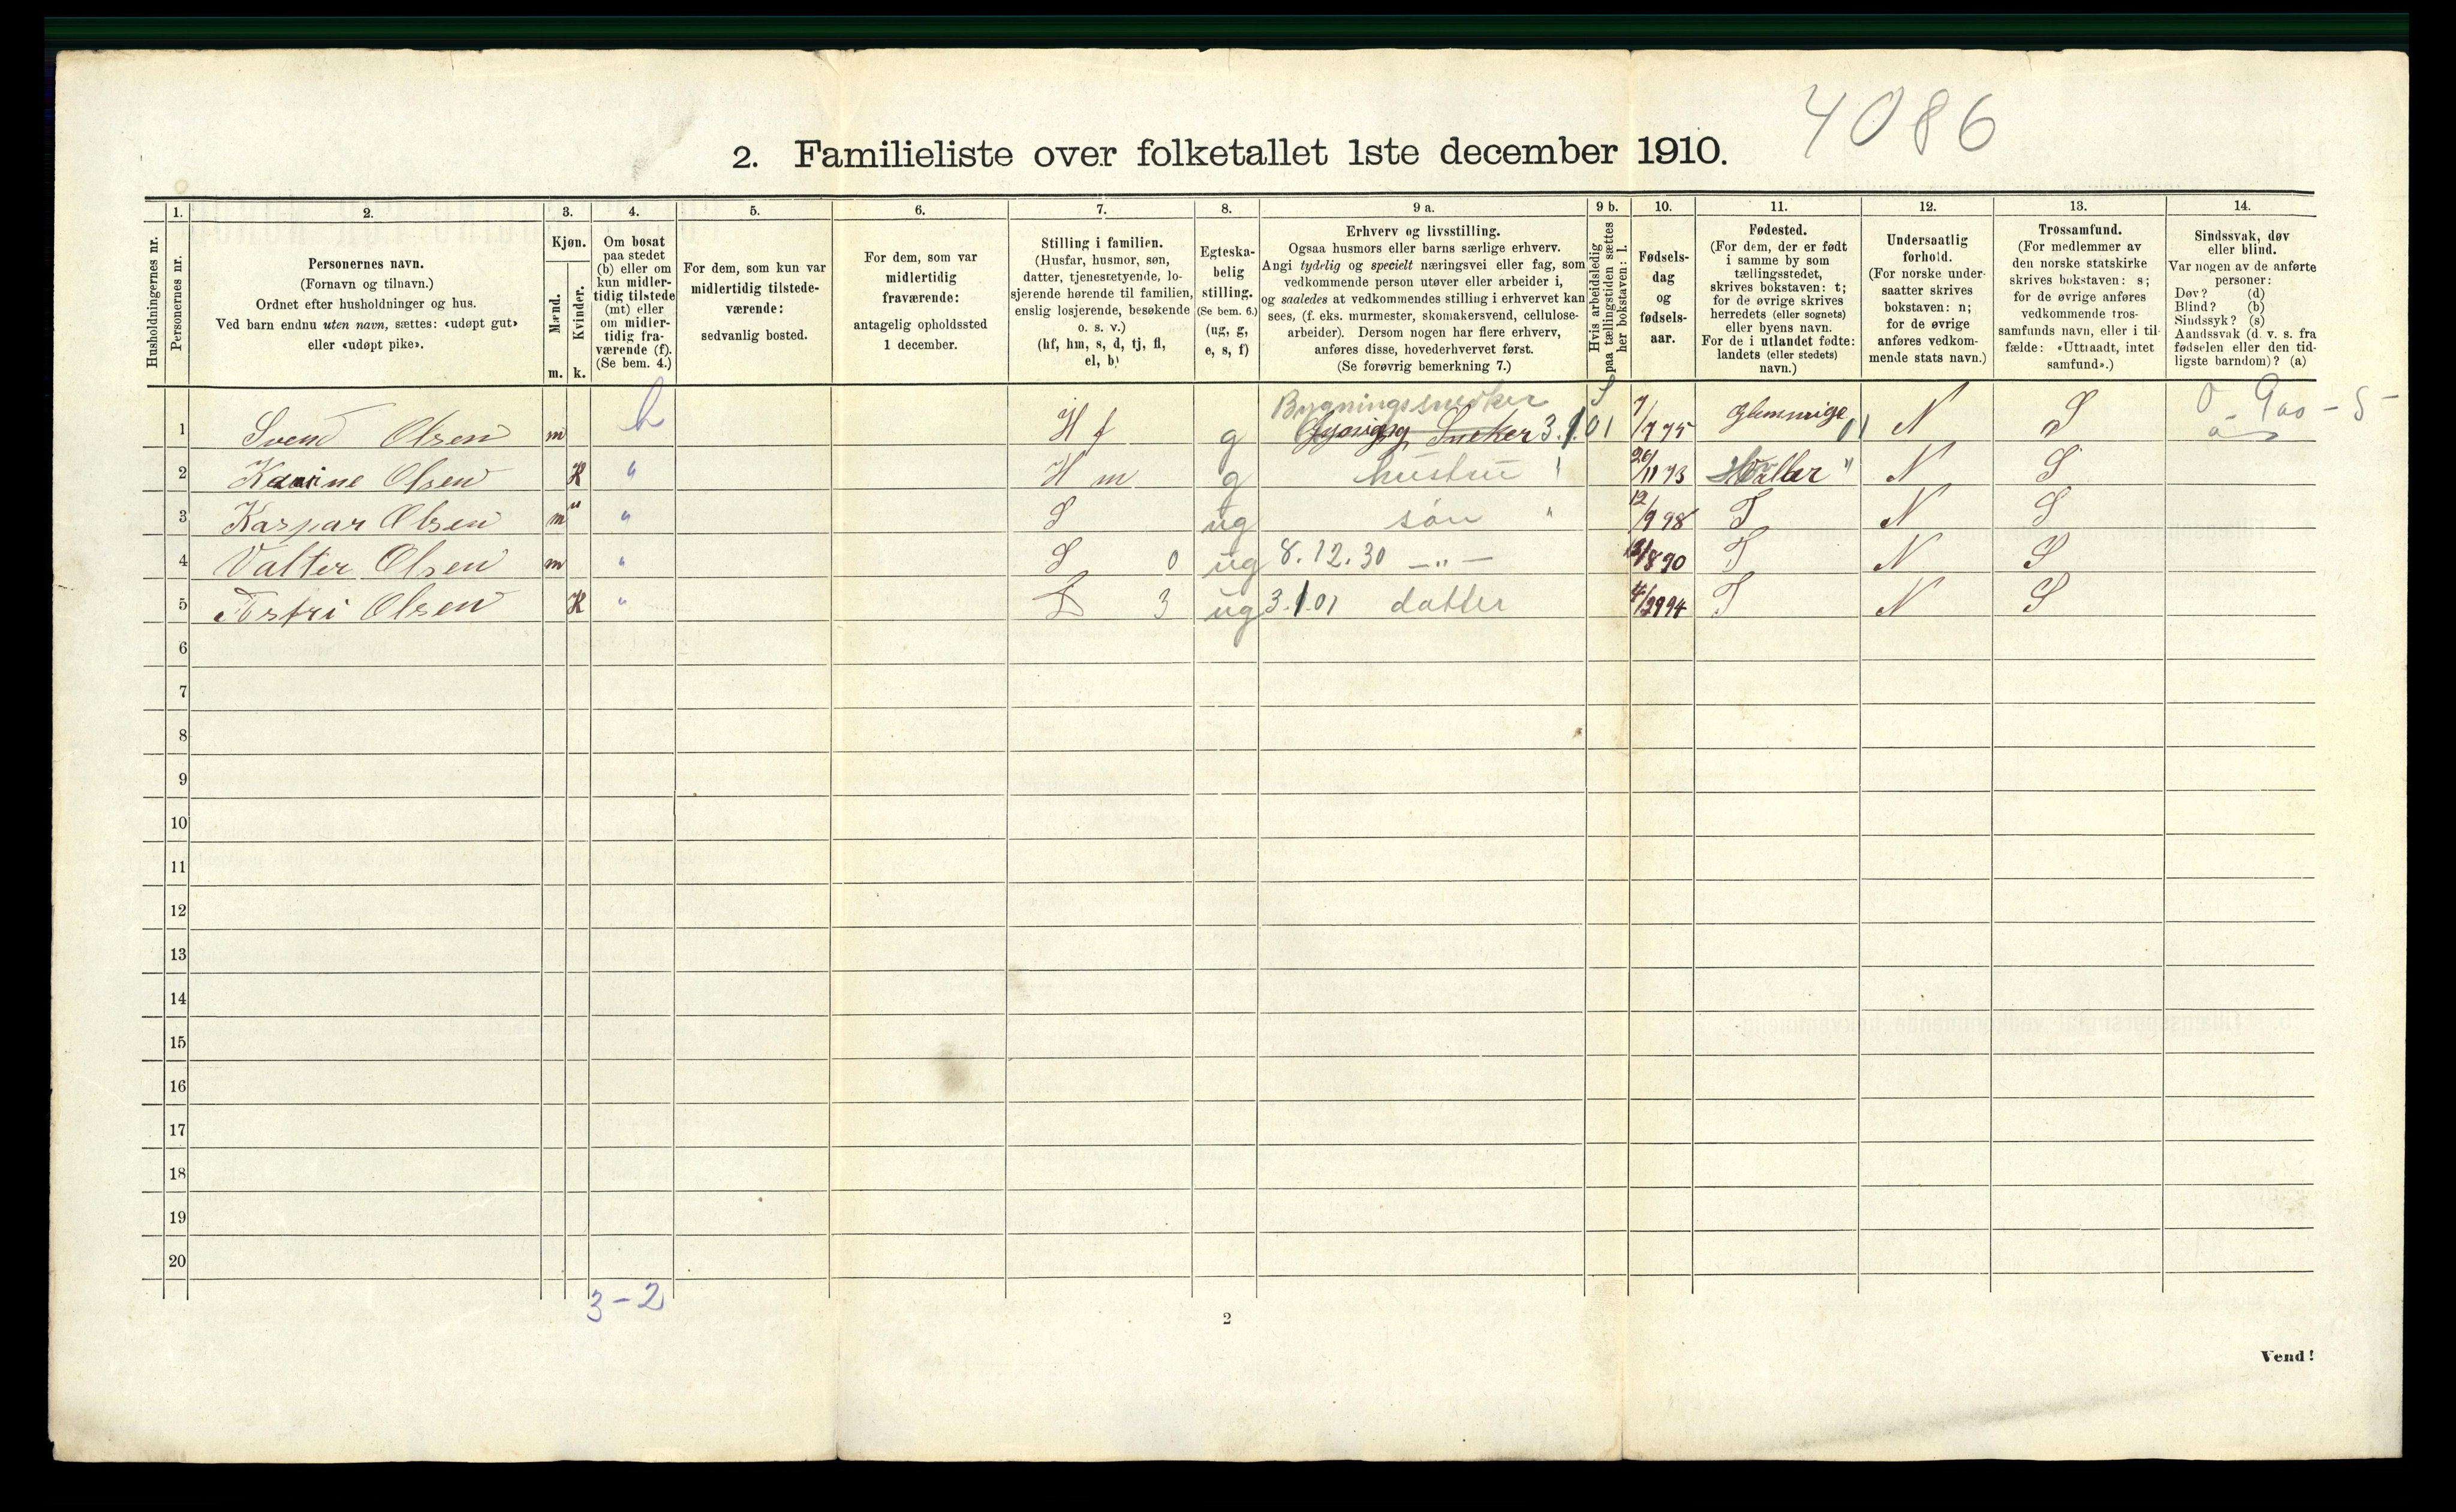 4086
2. Familieliste over folketallet 1ste december 1910.
Husholdningernes nr.
1. Personernes nr.
2. Personernes navn.
(Fornavn og tilnavn.)
Ordnet efter husholdninger og hus.
Ved barn endnu uten navn, sættes: «udøpt gut»
eller «udøpt pike».
3. Kjøn.
Mænd. m.
Kvinder. k.
4. Om bosat
paa stedet
(b) eller om
kun midler-
tidig tilstede
(mt) eller
om midler-
tidig fra-
værende (f).
(Se bem. 4.)
5. For dem, som kun var
midlertidig tilstede-
værende:
sedvanlig bosted.
6. For dem, som var
midlertidig
fraværende:
antagelig opholdssted
1 december.
7. Stilling i familien.
(Husfar, husmor, søn,
datter, tjenestetyende, lo-
sjerende hørende til familien,
enslig losjerende, besøkende
o. s. v.)
(hf, hm, s, d, tj, fl,
el, b)
8. Egteska-
belig
stilling.
(Se bem. 6.)
(ug, g,
e, s, f)
9 a. Erhverv og livsstilling.
Ogsaa husmors eller barns særlige erhverv.
Angi tydelig og specielt næringsvei eller fag, som
vedkommende person utøver eller arbeider i,
og saaledes at vedkommendes stilling i erhvervet kan
sees, (f. eks. murmester, skomakersvend, cellulose-
arbeider). Dersom nogen har flere erhverv,
anføres disse, hovederhvervet først.
(Se forøvrig bemerkning 7.)
9 b. Hvis arbeidsledig
paa tællingstiden sættes
her bokstaven: l.
10. Fødsels-
dag
og
fødsels-
aar.
11. Fødested.
(For dem, der er født
i samme by som
tællingsstedet,
skrives bokstaven: t;
for de øvrige skrives
herredets (eller sognets)
eller byens navn.
For de i utlandet fødte:
landets (eller stedets)
navn.)
12. Undersaatlig
forhold.
(For norske under-
saatter skrives
bokstaven: n;
for de øvrige
anføres vedkom-
mende stats navn.)
13. Trossamfund.
(For medlemmer av
den norske statskirke
skrives bokstaven: s;
for de øvrige anføres
vedkommende tros-
samfunds navn, eller i til-
fælde: «Uttraadt, intet
samfund».)
14. Sindssvak, døv
eller blind.
Var nogen av de anførte
personer:
Døv? (d)
Blind? (b)
Sindssyk? (s)
Aandssvak (d. v. s. fra
fødselen eller den tid-
ligste barndom)? (a)
1 Svend Olsen m b H f g Bygningssnedker Sneker 3.1.01 7/7 75 Glemmige N S
2 Karine Olsen K " H m g hustru " 26/11 73 Hvaler " N S
3 Kaspar Olsen m " S ug søn " 12/9 98 T N S
4 Valter Olsen m " S 0 ug 8.12.30 —"— /8 90 T N S
5 Astri Olsen K " D 3 ug 3.1.01 datter 4/2 94 T N S
6
7
8
9
10
11
12
13
14
15
16
17
18
19
20
3-2
2
Vend!